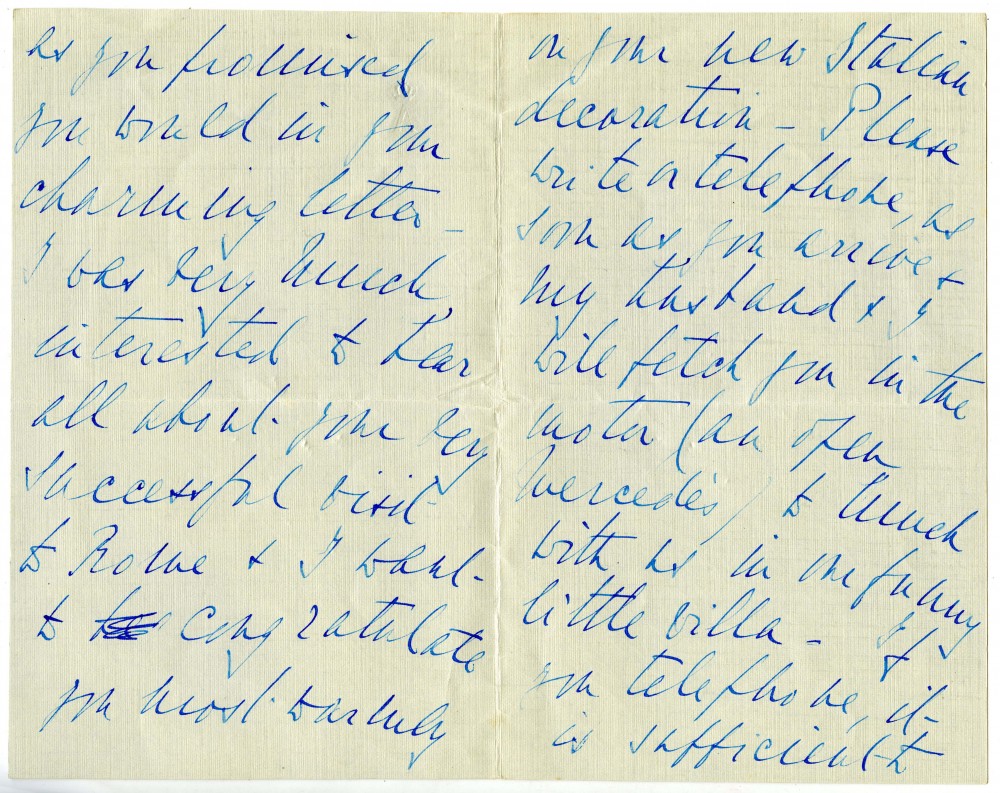 as you promised
you would in your
charming letter –
I was very much
interested to hear
all about your very
successful visit
to Rome & I want
to congratulate
you most warmly
on your new Italian
decoration – Please
write or telephone, as
soon as you arrive &
my husband & I
will fetch you in the
motor (an open
Mercédès) to lunch
with us in our funny
little villa – If
you telephone, it
is sufficient to